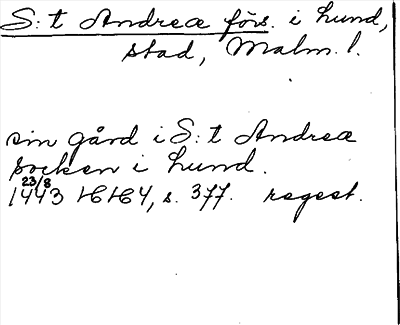 S:t Andreæ förs. i Lund,
stad, Malm. l.
sin gård i S:t Andreæ
socken i Lund.
23/8
1443 HH4, s. 377. regest.